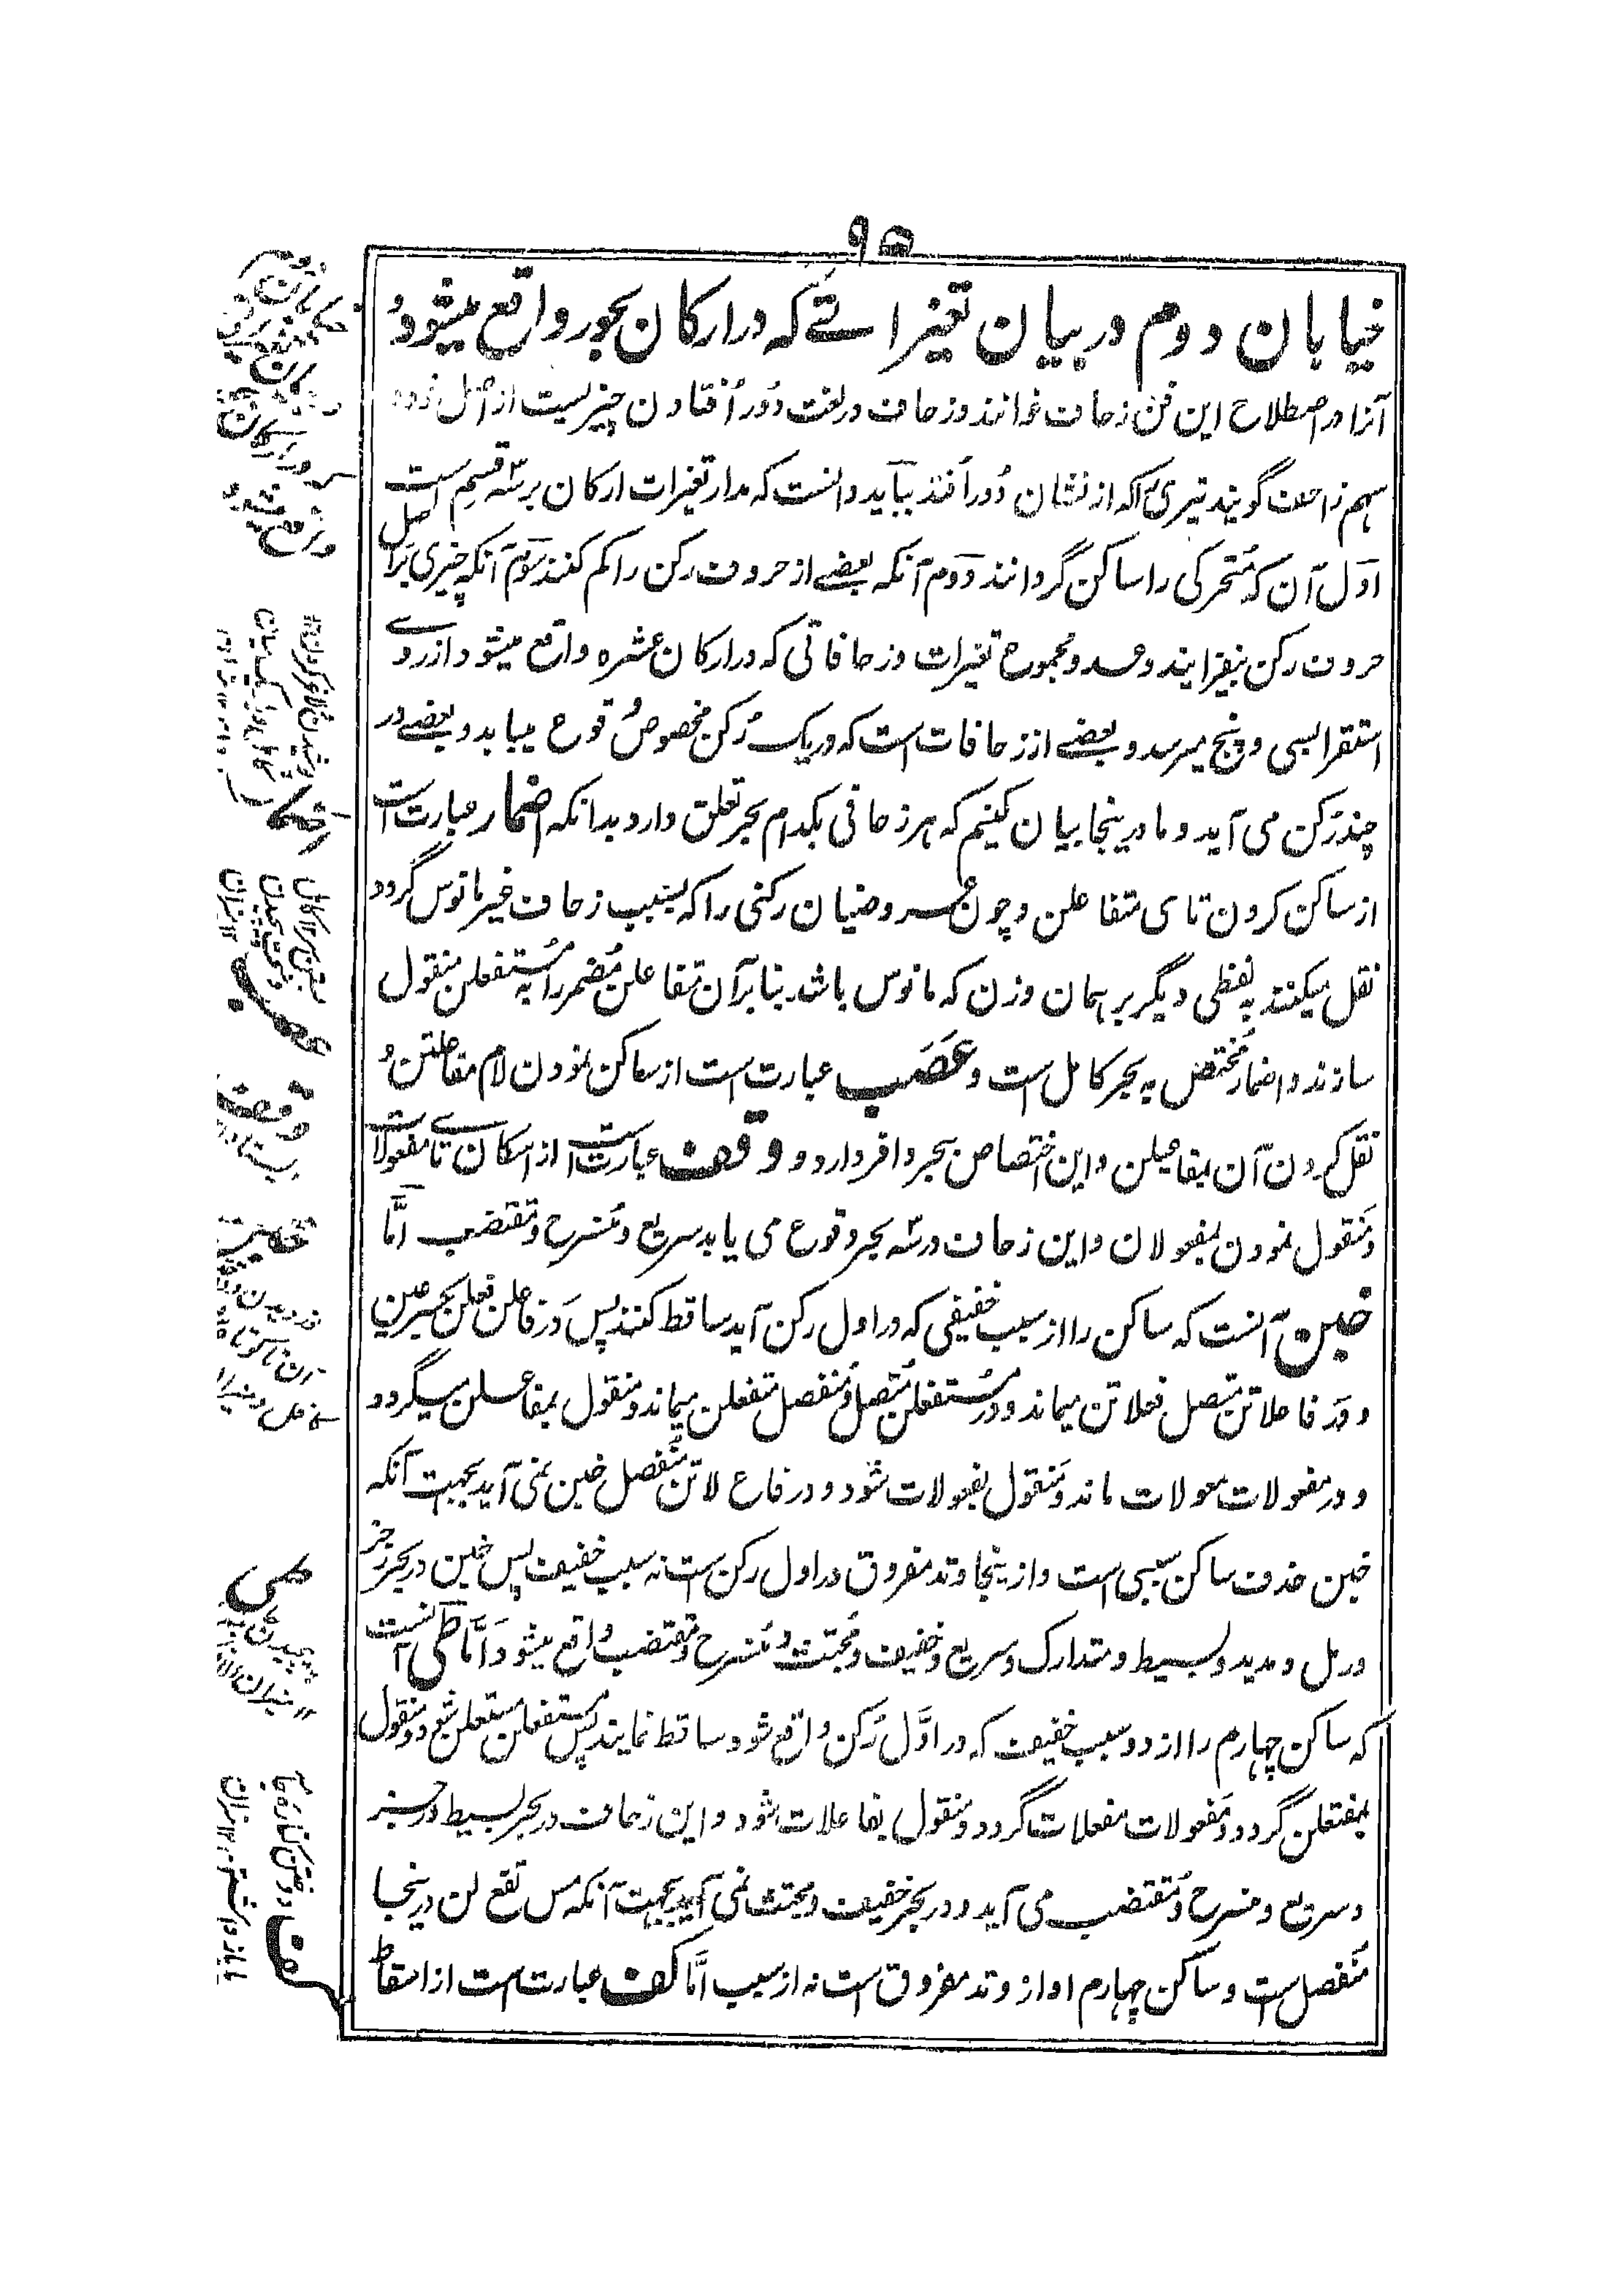 ۹۵
خیابان دوم در بیان تغیراتے که در ارکان بحور واقع میشود و
آنرا در اصطلاح این فن زحاف خوانند و زحاف در لغت دور افتادن چیزیست از اصل خود و
سهم زاحف گویند تیری را که از نشان دور افتد بباید دانست که مدار تغیرات ارکان بر سه قسم است
اول آن که متحرکی را ساکن گردانند دوم آنکه بعضے از حروف رکن را کم کنند سوم آنکه چیزی بر اصل
حروف رکن بیفزایند و عدد مجموع تغیرات و زحافاتی که در ارکان عشره واقع میشود از روے
استقرا سی و پنج میرسد و بعضے از زحافات است که در یک رکن مخصوص وقوع مییابد و بعضے در
چند رکن می آید و ما درینجا بیان کنیم که هر زحافی بکدام بحر تعلق دارد بدانکه اضمار عبارت است
از ساکن کردن تای متفاعلن و چون عروضیان رکنی را که بسبب زحاف غیر مانوس گردد
نقل میکنند به لفظی دیگر بر همان وزن که مانوس باشد بنابرآن متفاعلن مضمر را به مستفعلن منقول
سازند و اضمار مختص به بحر کامل است و عَصَب عبارت است از ساکن نمودن لام مفاعلتن و
نقل کردن آن بمفاعیلن و این اختصاص ببحر وافر دارد و وقف عبارت است از اسکان تاے مفعولات
و منقول نمودن بمفعولان و این زحاف در سه بحر وقوع می یابد سریع و منسرح و مقتضب امّا
خبن آنست که ساکن را از سبب خفیفی که در اول رکن آید ساقط کنند پس در فاعلن فعلن بکسر عین
و در فاعلاتن متصل فعلاتن میماند و در مستفعلن متصل و منفصل متفعلن میماند و منقول بمفاعلن میگردد
و در مفعولات معولات ماند و منقول بفعولات شود و در فاع لاتن منفصل خبن نمی آید بجهت آنکه
خبن حذف ساکن سببی است و ازینجا وتد مفروق در اول رکن است نه سبب خفیف پس خبن در بحر رجز
و رمل و مدید و بسیط و متدارک و سریع و خفیف و مجتث و منسرح و مقتضب واقع میشود امّا طی آنست
که ساکن چهارم را از دو سبب خفیف که در اوّل رکن واقع شود ساقط نمایند پس مستفعلن مستعلن شود و منقول
بمفتعلن گردد و مفعولات مفعلات گردد و منقول بفاعلات شود و این زحاف در بحر بسیط و رجز
و سریع و منسرح و مقتضب می آید و در بحر خفیف و مجتث نمی آید بجهت آنکه مس تفع لن درینجا
منفصل است و ساکن چهارم او از وتد مفروق است نه از سبب امّا کف عبارت است از اسقاط